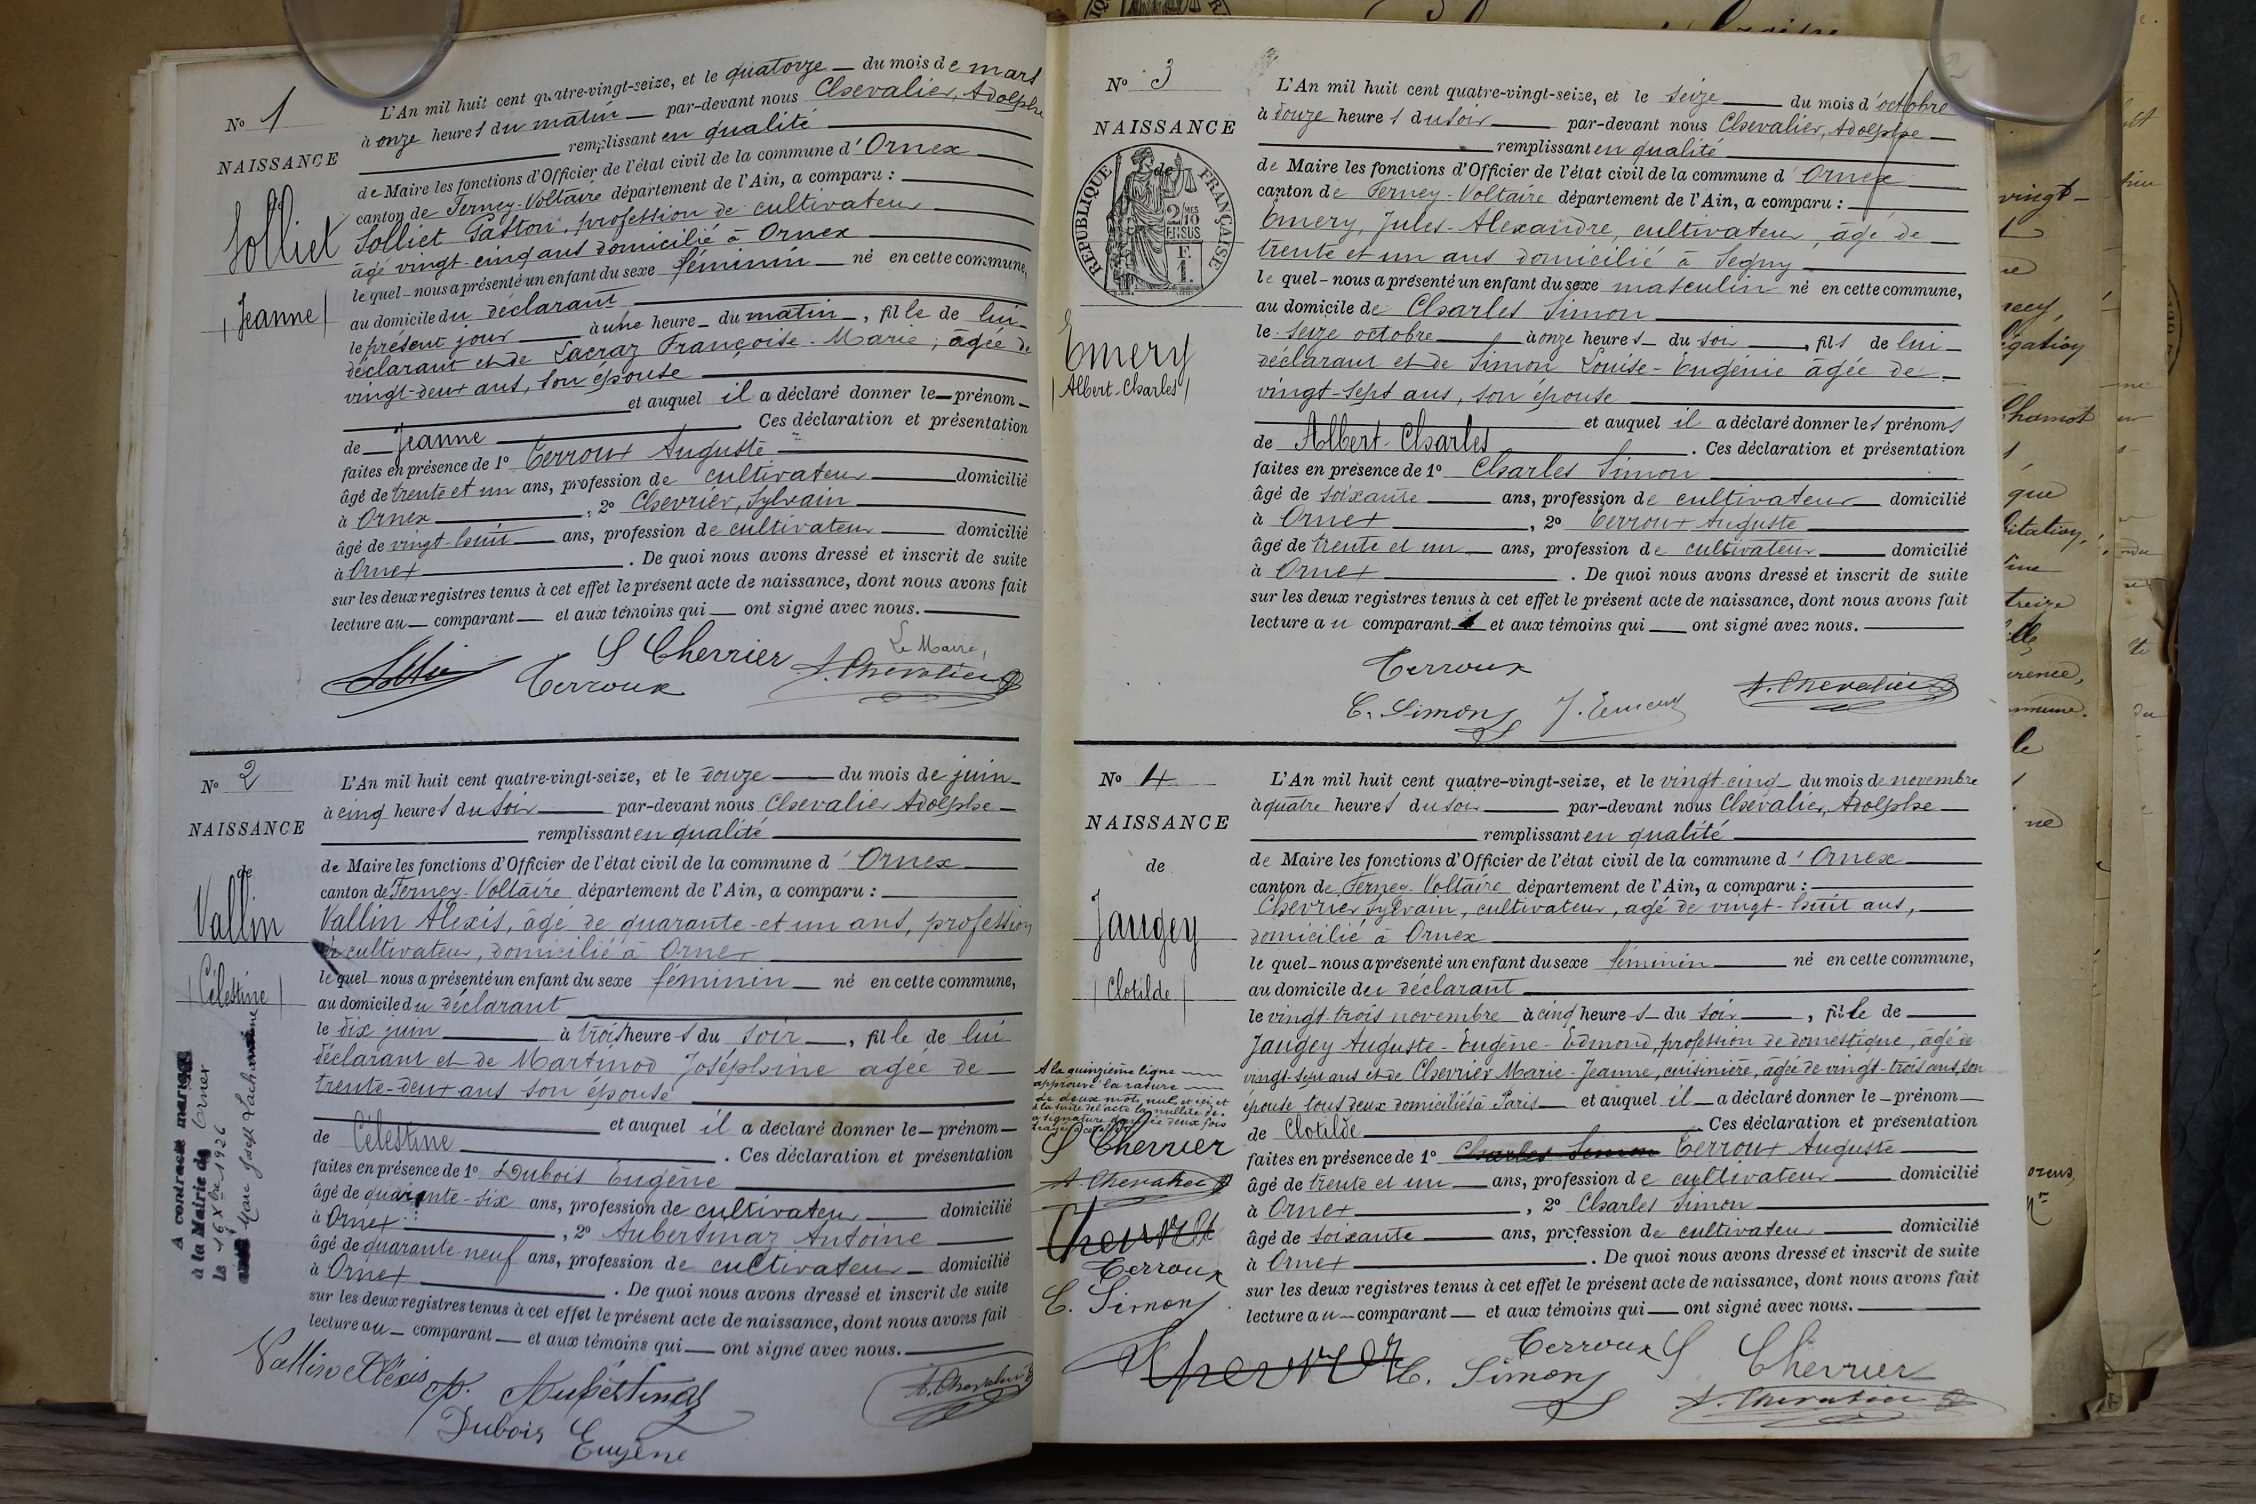 N° 1
NAISSANCE
Solliet
Jeanne
L'An mil huit cent quatre-vingt-seize, et le quatorze du mois de mars
à onze heures du matin par-devant nous Chevalier, Adolphe
remplissant en qualité
de Maire les fonctions d'Officier de l'état civil de la commune d'Ornex
canton de Ferney-Voltaire département de l'Ain, a comparu :
Solliet Gaston, profession de cultivateur
âgé vingt-cinq ans domicilié à Ornex
lequel nous a présenté un enfant du sexe féminin né en cette commune,
au domicile du déclarant
le présent jour à une heure du matin, fille de lui
déclarant et de Lacraz Françoise-Marie, âgée de
vingt-deux ans, son épouse
et auquel il a déclaré donner le prénom
de Jeanne. Ces déclaration et présentation
faites en présence de 1° Terroux Auguste
âgé de trente et un ans, profession de cultivateur domicilié
à Ornex, 2° Chevrier, Sylvain
âgé de vingt-huit ans, profession de cultivateur domicilié
à Ornex. De quoi nous avons dressé et inscrit de suite
sur les deux registres tenus à cet effet le présent acte de naissance, dont nous avons fait
lecture au comparant et aux témoins qui ont signé avec nous.
S Chevrier Le Maire,
Terroux A. Chevalier
N° 2
NAISSANCE
de
Vallin
Célestine
L'An mil huit cent quatre-vingt-seize, et le douze du mois de juin
à cinq heures du soir par-devant nous Chevalier Adolphe
remplissant en qualité
de Maire les fonctions d'Officier de l'état civil de la commune d'Ornex
canton de Ferney-Voltaire département de l'Ain, a comparu :
Vallin Alexis, âgé de quarante-et un ans, profession
de cultivateur, domicilié à Ornex
lequel nous a présenté un enfant du sexe féminin né en cette commune,
au domicile du déclarant
le dix juin à trois heures du soir, fille de lui
déclarant et de Martinod Joséphine agée de
trente-deux ans son épouse
et auquel il a déclaré donner le prénom
de Célestine. Ces déclaration et présentation
faites en présence de 1° Dubois Eugène
âgé de quarante-six ans, profession de cultivateur domicilié
à Ornex, 2° Aubertinaz Antoine
âgé de quarante-neuf ans, profession de cultivateur domicilié
à Ornex. De quoi nous avons dressé et inscrit de suite
sur les deux registres tenus à cet effet le présent acte de naissance, dont nous avons fait
lecture au comparant et aux témoins qui ont signé avec nous.
A contracté mariage
à la Mairie de Ornex
Le 16 Xbre 1926
Marc Joseph
Vallin Alexis
Aubertinaz A. Chevalier
Dubois
Eugène
N° 3
NAISSANCE
de
RÉPUBLIQUE FRANÇAISE
2/10 EN SUS
Emery
Albert-Charles
L'An mil huit cent quatre-vingt-seize, et le seize du mois d'octobre
à douze heures du soir par-devant nous Chevalier, Adolphe
remplissant en qualité
de Maire les fonctions d'Officier de l'état civil de la commune d'Ornex
canton de Ferney-Voltaire département de l'Ain, a comparu :
Emery, Jules-Alexandre, cultivateur, âgé de
trente et un ans domicilié à Segny
lequel nous a présenté un enfant du sexe masculin né en cette commune,
au domicile de Charles Simon
le seize octobre à onze heures du soir, fils de lui
déclarant et de Simon Louise-Eugénie âgée de
vingt-sept ans, son épouse
et auquel il a déclaré donner les prénoms
de Albert-Charles. Ces déclaration et présentation
faites en présence de 1° Charles Simon
âgé de soixante ans, profession de cultivateur domicilié
à Ornex, 2° Terroux Auguste
âgé de trente et un ans, profession de cultivateur domicilié
à Ornex. De quoi nous avons dressé et inscrit de suite
sur les deux registres tenus à cet effet le présent acte de naissance, dont nous avons fait
lecture au comparant et aux témoins qui ont signé avec nous.
Terroux
C. Simon J. Emery A. Chevalier
N° 4
NAISSANCE
de
Jaugey
Clotilde
L'An mil huit cent quatre-vingt-seize, et le vingt-cinq du mois de novembre
à quatre heures du soir par-devant nous Chevalier, Adolphe
remplissant en qualité
de Maire les fonctions d'Officier de l'état civil de la commune d'Ornex
canton de Ferney-Voltaire département de l'Ain, a comparu :
Chevrier Sylvain, cultivateur, agé de vingt-huit ans,
domicilié à Ornex
lequel nous a présenté un enfant du sexe féminin né en cette commune,
au domicile du déclarant
le vingt-trois novembre à cinq heures du soir, fille de
Jaugey Auguste-Eugène-Edmond, profession de domestique, âgé de
vingt-sept ans et de Chevrier Marie-Jeanne, cuisinière, âgée de vingt-trois ans, son
épouse tous deux domiciliés à Paris et auquel il a déclaré donner le prénom
de Clotilde. Ces déclaration et présentation
faites en présence de 1° Charles Simon Terroux Auguste
âgé de trente et un ans, profession de cultivateur domicilié
à Ornex, 2° Charles Simon
âgé de soixante ans, profession de cultivateur domicilié
à Ornex. De quoi nous avons dressé et inscrit de suite
sur les deux registres tenus à cet effet le présent acte de naissance, dont nous avons fait
lecture au comparant et aux témoins qui ont signé avec nous.
A la quinzième ligne
approuvé la rature
de deux mots nuls et ici, et
à la suite de l'acte la nullité de
S Chevrier
A. Chevalier
Terroux
C. Simon
Terroux S Chevrier
C. Simon
A. Chevalier